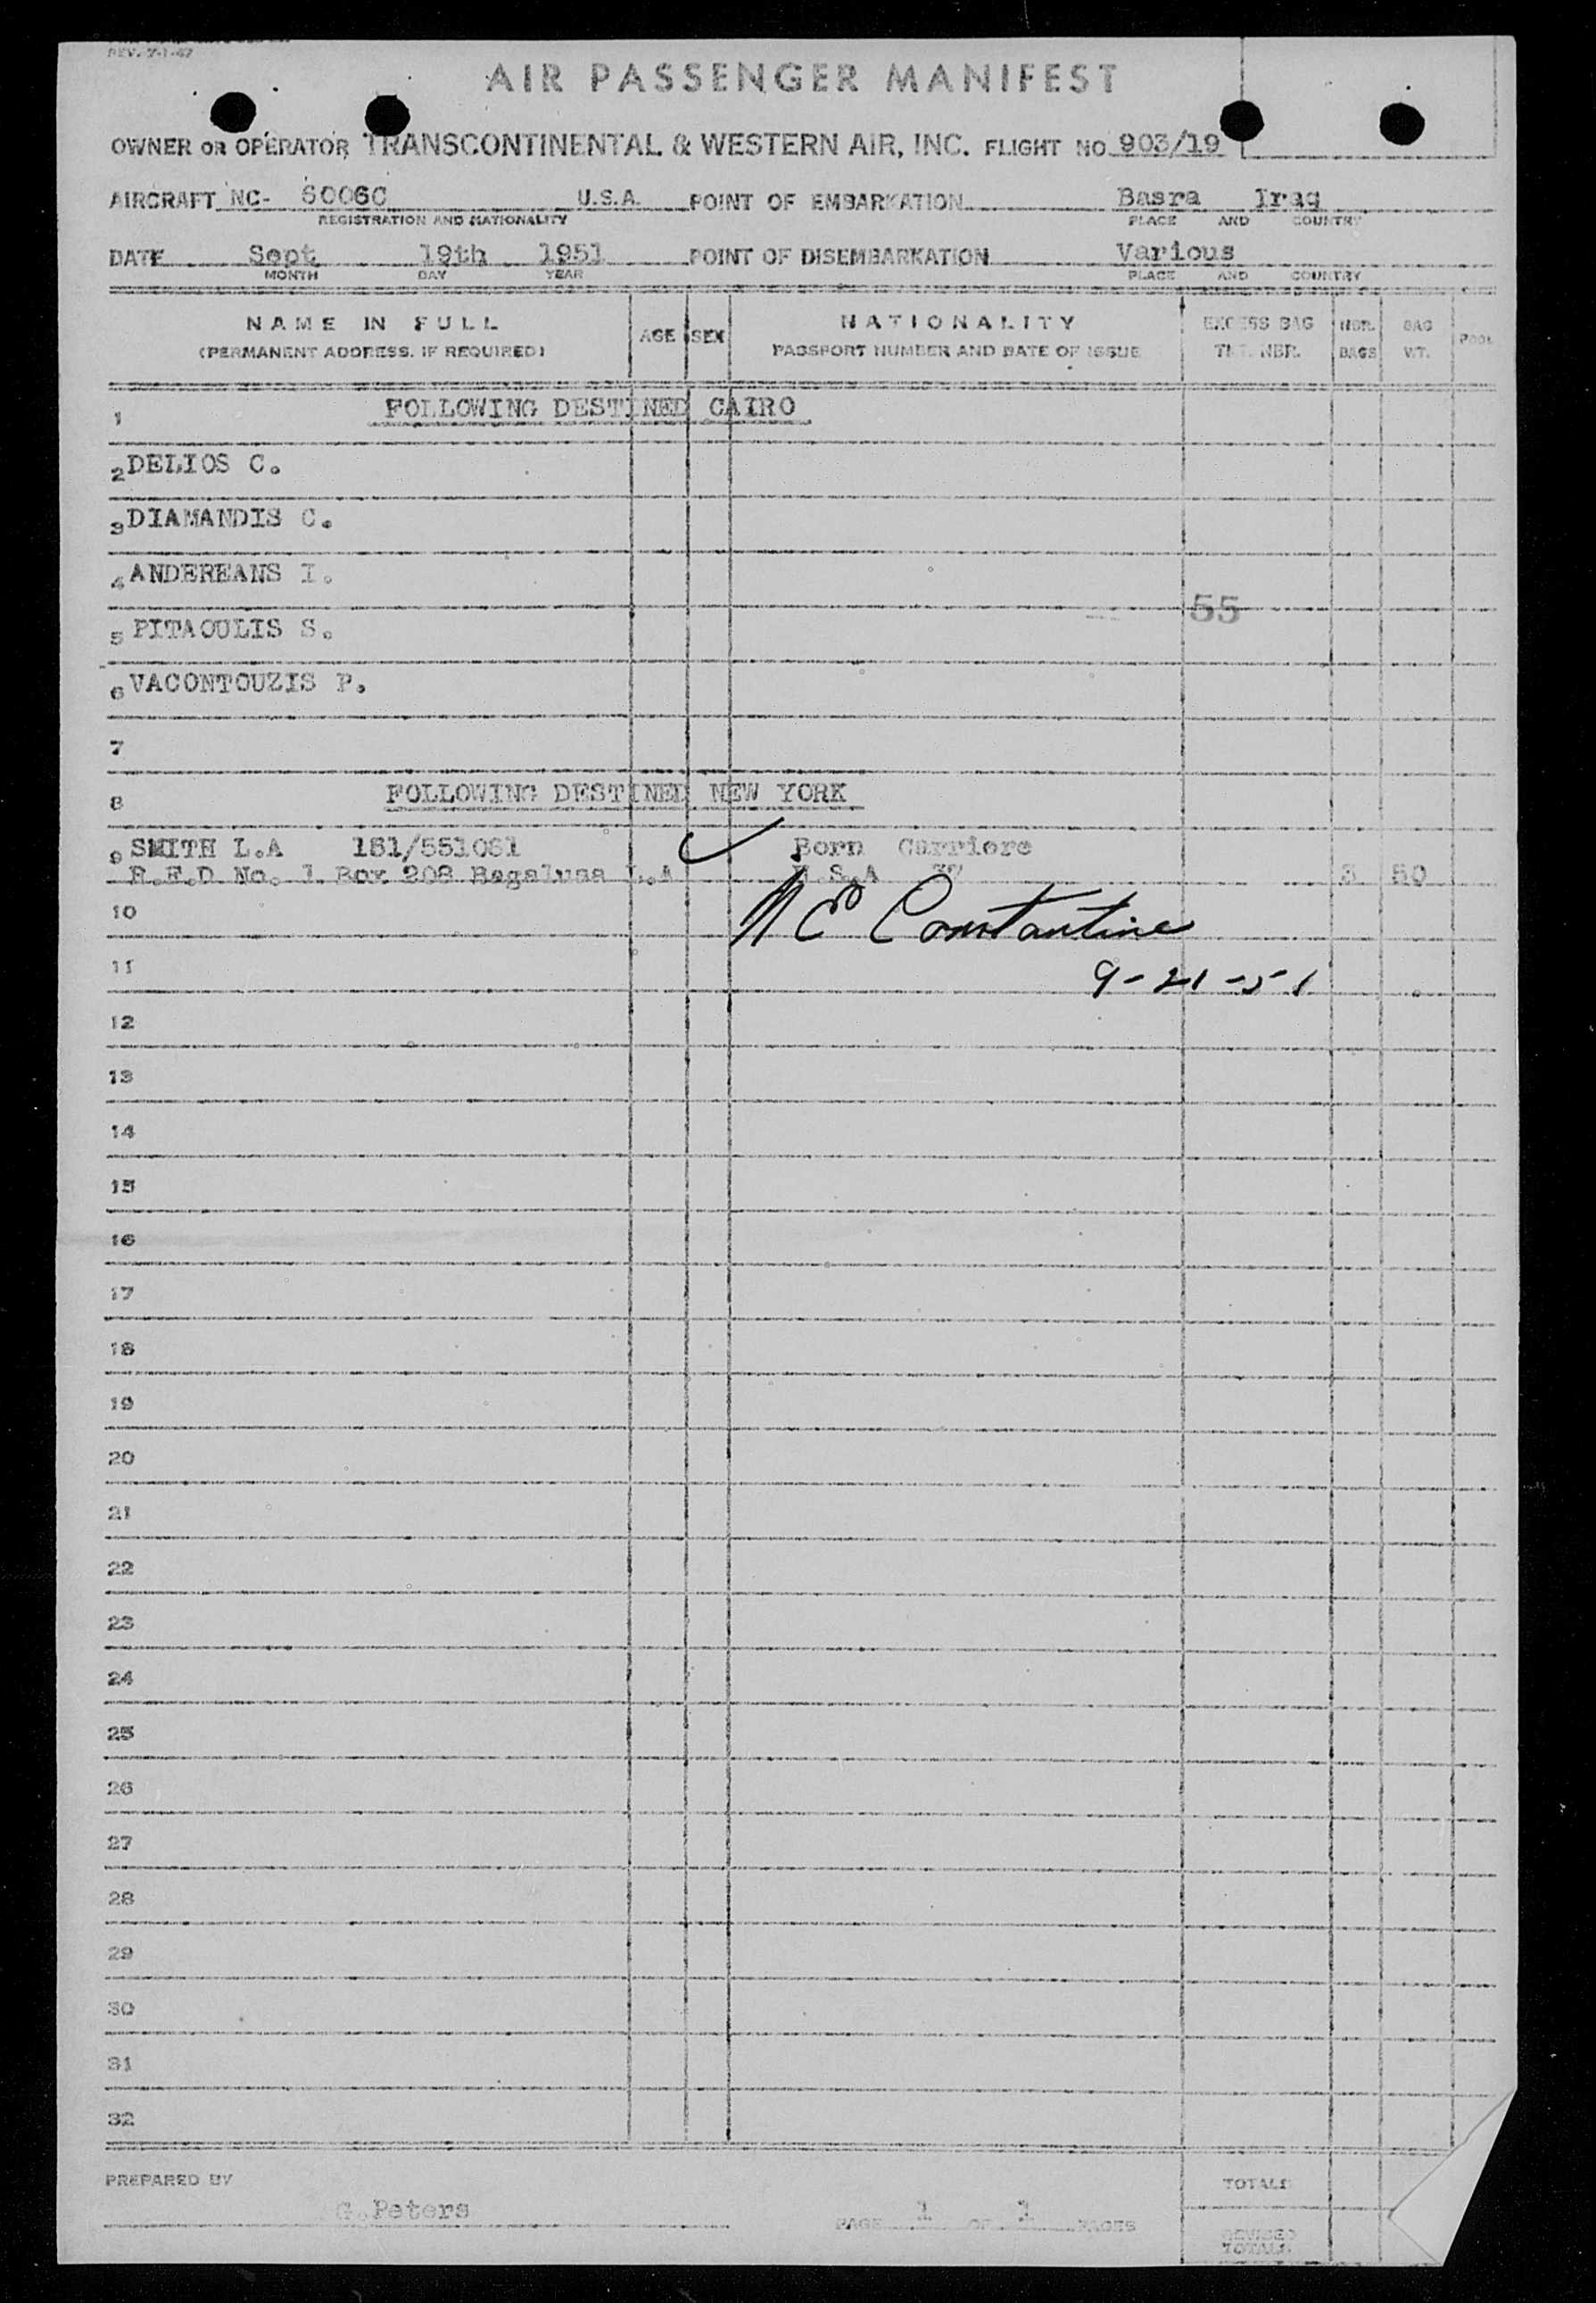 REV. 7-1-47
AIR PASSENGER MANIFEST
OWNER OR OPERATOR TRANSCONTINENTAL & WESTERN AIR, INC. FLIGHT NO 903/19
AIRCRAFT NC- 6006C U.S.A. POINT OF EMBARKATION Basra Iraq
REGISTRATION AND NATIONALITY PLACE AND COUNTRY
DATE Sept 19th 1951 POINT OF DISEMBARKATION Various
MONTH DAY YEAR PLACE AND COUNTRY
NAME IN FULL AGE SEX NATIONALITY EXCESS BAG NBR. BAG POOL
(PERMANENT ADDRESS, IF REQUIRED) PASSPORT NUMBER AND DATE OF ISSUE TKT. NBR. BAGS WT.
1 FOLLOWING DESTINED CAIRO
2 DELIOS C.
3 DIAMANDIS C.
4 ANDEREANS I.
55
5 PITAOULIS S.
6 VACONTOUZIS P.
7
8 FOLLOWING DESTINED NEW YORK
9 SMITH L.A 181/551061 Born Carriere
R.F.D No. 1 Box 208 Bogalusa L.A U.S.A 3 50
10 N E Constantine
11 9-21-51
12
13
14
15
16
17
18
19
20
21
22
23
24
25
26
27
28
29
30
31
32
PREPARED BY TOTALS
G.Peters PAGE 1 OF 1 PAGES
REVISED
TOTALS